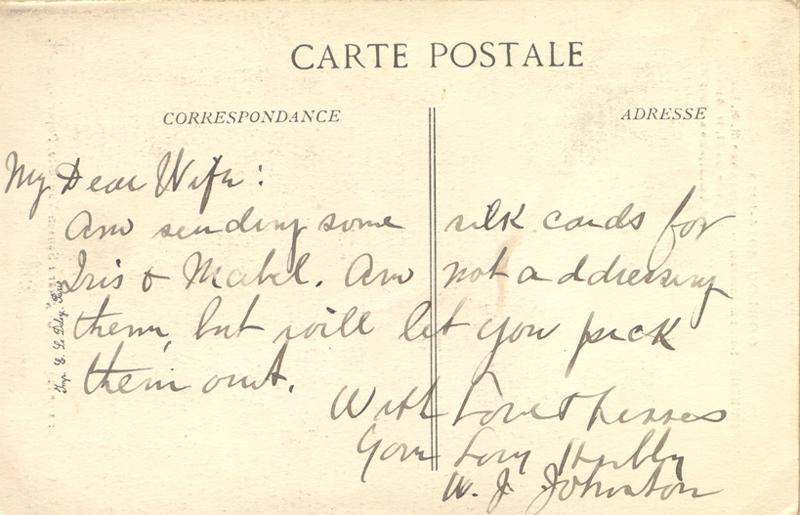 CARTE POSTALE
CORRESPONDANCE
ADRESSE
My Dear Wife:
Am sending some silk cards for
Iris & Mabel. Am not addressing
them, but will let you pick
them out.
With Love & kisses
Your Lovg Hubby
W. J. Johnston